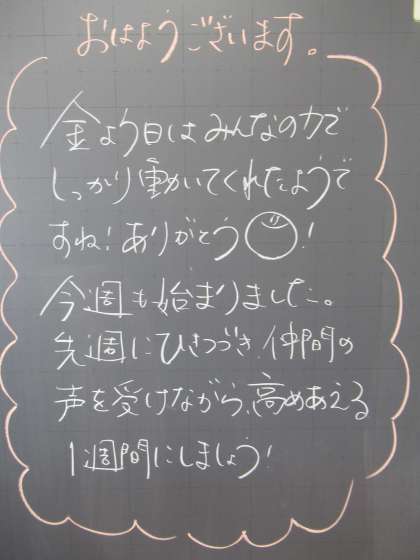 おはようございます。
金よう日はみんなの力で
しっかり動いてくれたようで
すね!ありがとう!
今週も始まりました。
先週にひきつづき、仲間の
声を受けながら、高めあえる
1週間にしましょう!